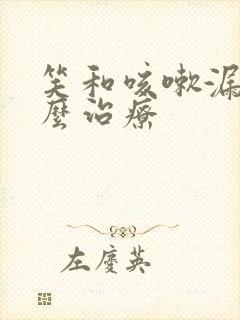 笑和咳嗽漏
麼治療
左慶英